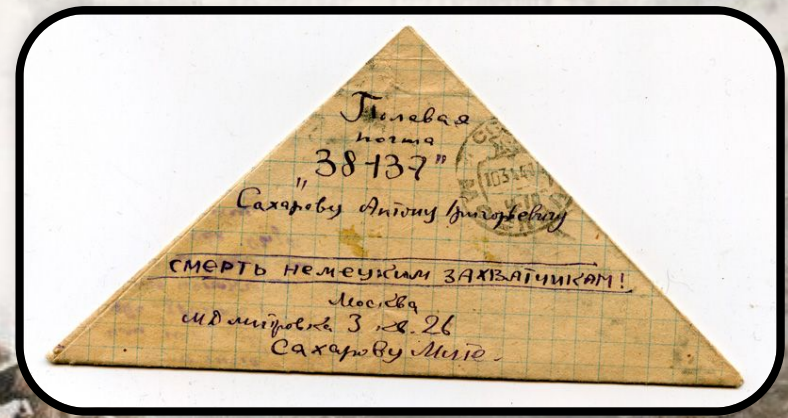 Полевая
почта
"38137"
Сахарову Антону Григорьевичу
СМЕРТЬ НЕМЕЦКИМ ЗАХВАТЧИКАМ!
Москва
М Дмитровка 3 кв. 26
Сахарову Мите.